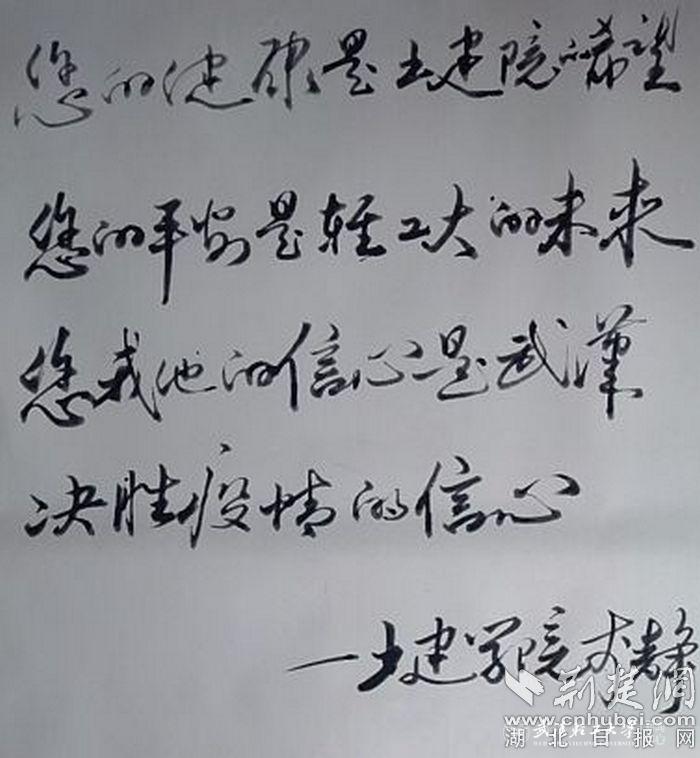 您的健康是土建院的希望
您的平安是轻工大的未来
您我他的信心是武漢
决胜疫情的信心
—土建学院 静
荆楚网
www.cnhubei.com
湖北日报网
武汉轻工大学